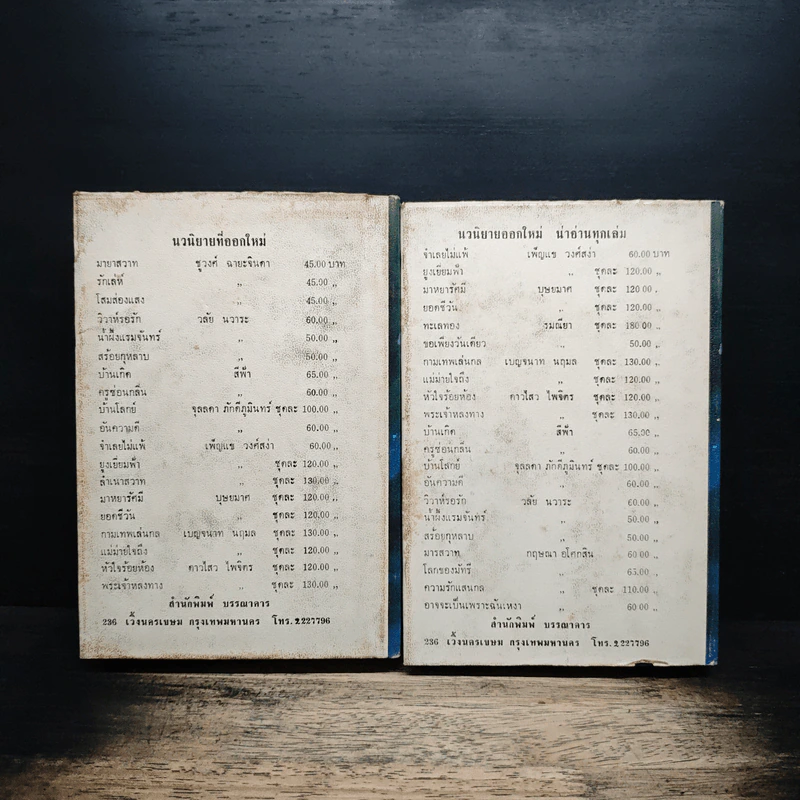 นวนิยายที่ออกใหม่
มายาสวาท ชูวงศ์ ฉายะจินดา 45.00 บาท
รักเล่ห์ ,, 45.00 ,,
โสมส่องแสง ,, 45.00 ,,
วิวาห์รอรัก วลัย นวาระ 60.00 ,,
น้ำผึ้งแรมจันทร์ ,, 50.00 ,,
สร้อยกุหลาบ ,, 50.00 ,,
บ้านเกิด สีฟ้า 65.00 ,,
ครูซ่อนกลิ่น ,, 60.00 ,,
บ้านโลกย์ จุลลดา ภักดีภูมินทร์ ชุดละ 100.00 ,,
อันความดี ,, 60.00 ,,
จำเลยไม่แพ้ เพ็ญแข วงศ์สง่า 60.00 ,,
ยูงเยี่ยมฟ้า ,, ชุดละ 120.00 ,,
ลำเนาสวาท ,, ชุดละ 130.00 ,,
มาหยารัศมี บุษยมาศ ชุดละ 120.00 ,,
ยอดชีวัน ,, ชุดละ 120.00 ,,
กามเทพเล่นกล เบญจนาท นฤมล ชุดละ 130.00 ,,
แม่ม่ายใจถึง ,, ชุดละ 120.00 ,,
หัวใจร้อยห้อง ดาวไสว ไพจิตร ชุดละ 120.00 ,,
พระเจ้าหลงทาง ,, ชุดละ 130.00 ,,
สำนักพิมพ์ บรรณาคาร
236 เวิ้งนครเขษม กรุงเทพมหานคร โทร. 2227796
นวนิยายออกใหม่ น่าอ่านทุกเล่ม
จำเลยไม่แพ้ เพ็ญแข วงศ์สง่า 60.00 บาท
ยูงเยี่ยมฟ้า ,, ชุดละ 120.00 ,,
มาหยารัศมี บุษยมาศ ชุดละ 120.00 ,,
ยอดชีวัน ,, ชุดละ 120.00 ,,
ทะเลทอง รมณียา ชุดละ 180.00 ,,
ขอเพียงวันเดียว ,, 50.00 ,,
กามเทพเล่นกล เบญจนาท นฤมล ชุดละ 130.00 ,,
แม่ม่ายใจถึง ,, ชุดละ 120.00 ,,
หัวใจร้อยห้อง ดาวไสว ไพจิตร ชุดละ 120.00 ,,
พระเจ้าหลงทาง ,, ชุดละ 130.00 ,,
บ้านเกิด สีฟ้า 65.00 ,,
ครูซ่อนกลิ่น ,, 60.00 ,,
บ้านโลกย์ จุลลดา ภักดีภูมินทร์ ชุดละ 100.00 ,,
อันความดี ,, 60.00 ,,
วิวาห์รอรัก วลัย นวาระ 60.00 ,,
น้ำผึ้งแรมจันทร์ ,, 50.00 ,,
สร้อยกุหลาบ ,, 50.00 ,,
มารสวาท กฤษณา อโศกสิน 60.00 ,,
โลกของมัทรี ,, 65.00 ,,
ความรักแสนกล ,, ชุดละ 110.00 ,,
อาจจะเป็นเพราะฉันเหงา ,, 60.00 ,,
สำนักพิมพ์ บรรณาคาร
236 เวิ้งนครเขษม กรุงเทพมหานคร โทร. 2227796